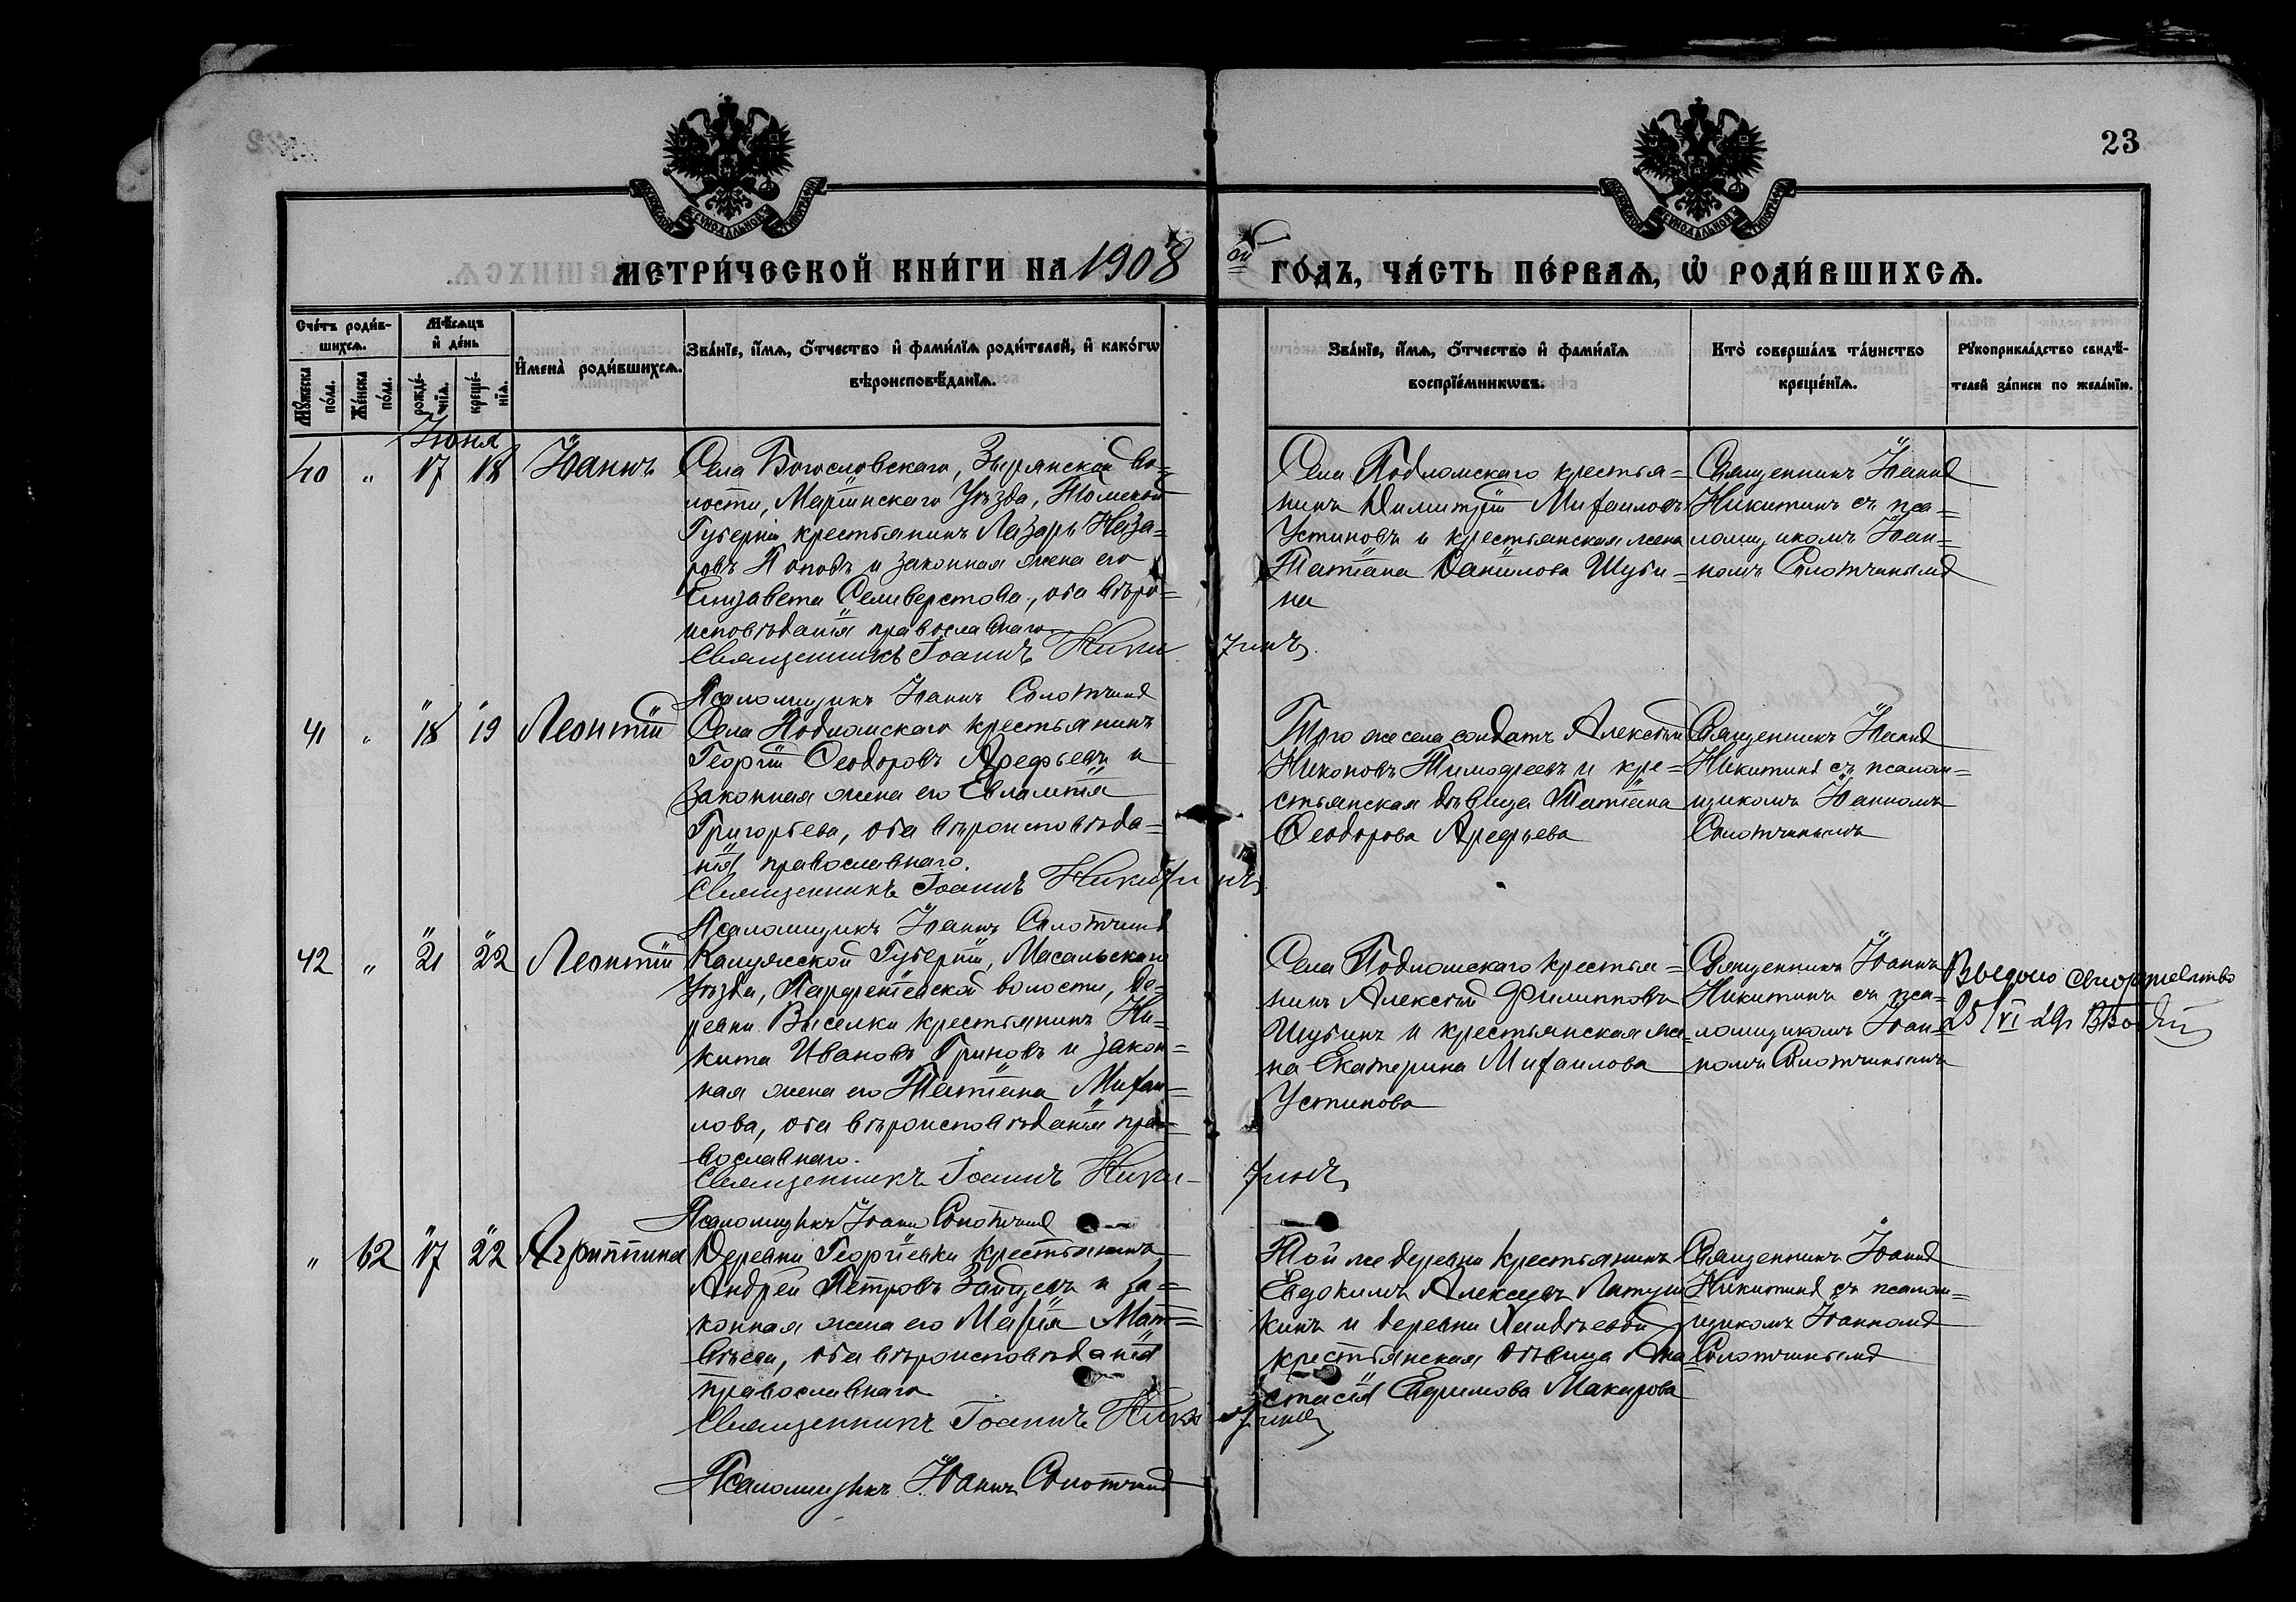 23
МЕТРИ́ЧЕСКОЙ КНИ́ГИ НА 1908 ой ГО́ДЪ, ЧА́СТЬ ПЕ́РВАѦ, Ѡ҆ РОДИ́ВШИХСѦ.
Сче́тъ роди́в-
шихсѧ.
Мꙋ́жеска
по́ла.
Же́нска
по́ла.
Мѣ́сѧцъ
и҆ де́нь
рожде́-
нїѧ.
креще́-
нїѧ.
И҆мена̀ роди́вшихсѧ.
Зва́нїе, и҆́мѧ, ѻ҆́тчество и҆ фами́лїѧ роди́телей, и҆ како́гѡ
вѣроисповѣ́данїѧ.
Зва́нїе, и҆́мѧ, ѻ҆́тчество и҆ фами́лїѧ
воспрїе́мникѡвъ.
Кто̀ соверша́лъ та́инство
креще́нїѧ.
Рꙋкоприкла́дство свидѣ́-
телей за́писи по жела́нїю.
Іюня
40 " 17 18 Іоаннъ
Села Богословскаго, Зырянской во=
лости, Маріинскаго Уѣзда, Томской
Губерніи крестьянинъ Лазарь Наза=
ровъ Поповъ и законная жена его
Елизавета Селиверстова, оба вѣро=
исповѣданія православнаго.
Священникъ Іоаннъ Никитинъ
Псаломщикъ Іоаннъ Слотчинъ
Села Подломскаго крестья=
нинъ Димитрій Михаиловъ
Устиновъ и крестьянская жена
Татіана Даніилова Шуби=
на
Священникъ Іоаннъ
Никитинъ съ пса=
ломщикомъ Іоан=
номъ Слотчинымъ
41 " 18 19 Леонтій
Села Подломскаго крестьянинъ
Георгій Ѳеодоровъ Арефьевъ и
законная жена его Евлампія
Григорьева, оба вѣроисповѣда=
нія православнаго.
Священникъ Іоаннъ Никитинъ
Псаломщикъ Іоаннъ Слотчинъ
Того же села солдатъ Алексѣй
Никоновъ Тимофеевъ и кре=
стьянская дѣвица Татіана
Ѳеодорова Арефьева
Священникъ Іоаннъ
Никитинъ съ псалом=
щикомъ Іоанномъ
Слотчинымъ
42 " 21 22 Леонтій
Калужской Губерніи, Масальскаго
Уѣзда, Парфеньевской волости, де=
ревни Выселки крестьянинъ Ни=
кита Ивановъ Гриновъ и закон=
ная жена его Татіана Михаи=
лова, оба вѣроисповѣданія пра=
вославнаго.
Священникъ Іоаннъ Никитинъ
Псаломщикъ Іоаннъ Слотчинъ
Села Подломскаго крестья=
нинъ Алексѣй Филипповъ
Шубинъ и крестьянская же=
на Екатерина Михаилова
Устинова
Священникъ Іоаннъ
Никитинъ съ пса=
ломщикомъ Іоан=
номъ Слотчинымъ
25/VI
" 62 17 22 Агриппина
Деревни Георгіевки крестьянинъ
Андрей Петровъ Зайцевъ и за=
конная жена его Марія Мат=
вѣева, оба вѣроисповѣданія
православнаго
Священникъ Іоаннъ Никитинъ
Псаломщикъ Іоаннъ Слотчинъ
Той же деревни крестьянинъ
Евдокимъ Алексѣевъ
кинъ и деревни
крестьянская дѣвица Ана=
стасія Ефимова Макарова
Священникъ Іоаннъ
Никитинъ съ псалом=
щикомъ Іоанномъ
Слотчинымъ